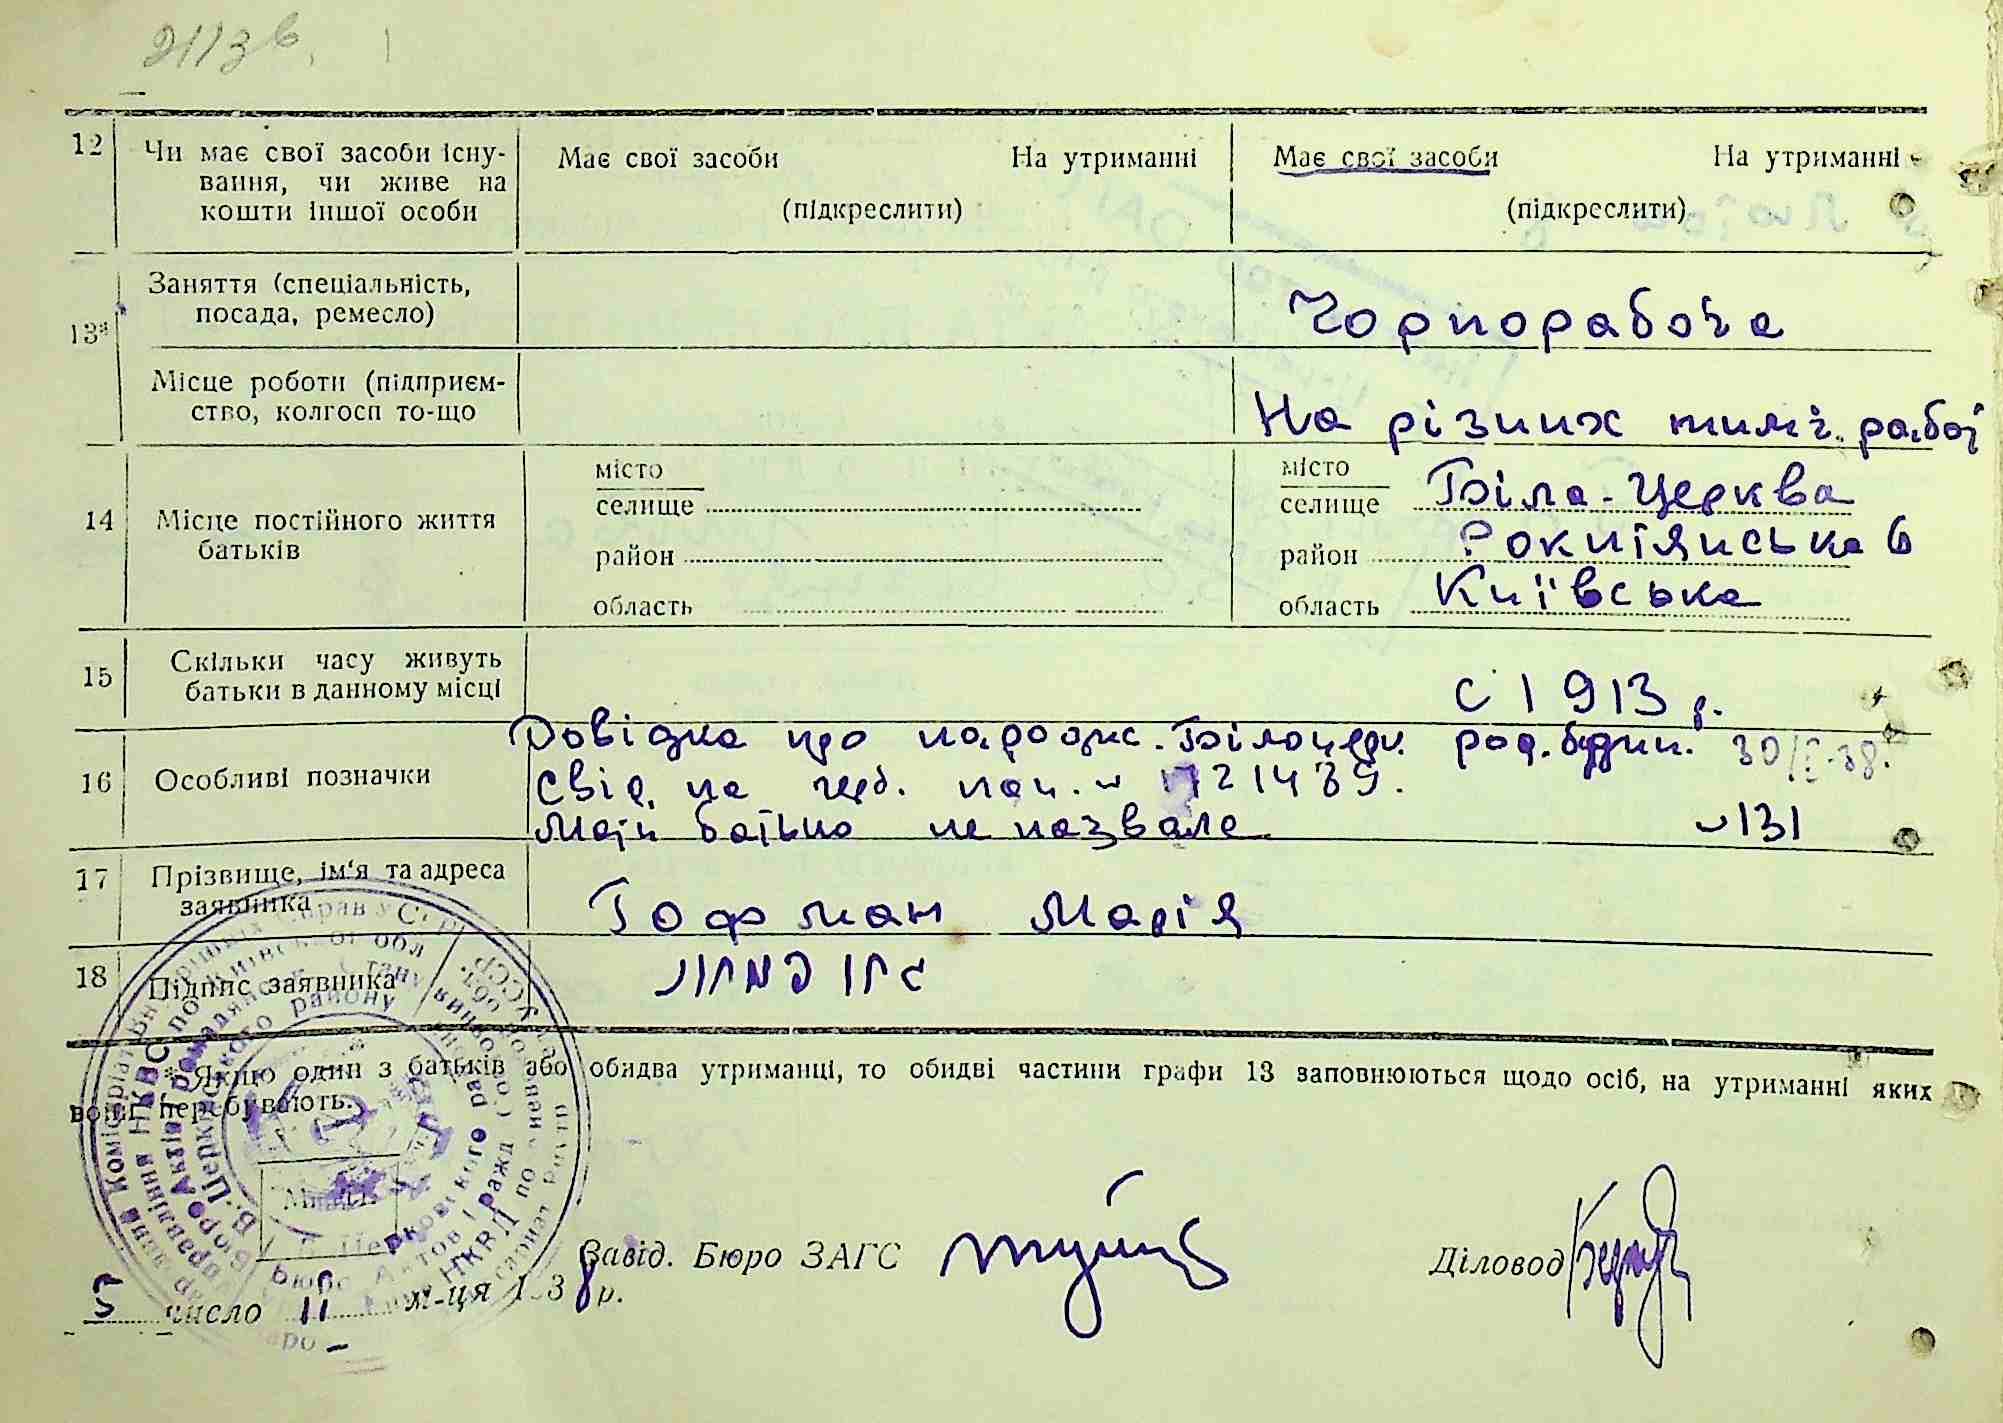 21 зв.
12 Чи має свої засоби існу-
вання, чи живе на
кошти іншої особи
Має свої засоби На утриманні
(підкреслити)
Має свої засоби На утриманні
(підкреслити)
13*
Заняття (спеціальність,
посада, ремесло)
Чорнорабоча
Місце роботи (підприєм-
ство, колгосп то-що
На різних тимч. рабої
14 Місце постійного життя
батьків
місто
селище
район
область
місто
селище Біла-Церква
район Рокитянська 6
область Київська
15 Скільки часу живуть
батьки в данному місці
С 1913 р.
16 Особливі позначки
Довідка про народж. Білоцерк. род. будин.
Свід. на
Мати батька не назвала 131
17 Прізвище, ім'я та адреса
заявника
Гофман Марія
18 Підпис заявника
* Якщо один з батьків або обидва утриманці, то обидві частини графи 13 заповнюються щодо осіб, на утриманні яких
вони перебувають.
Завід. Бюро ЗАГС
Діловод
5 число 11 м-ця 1938 р.